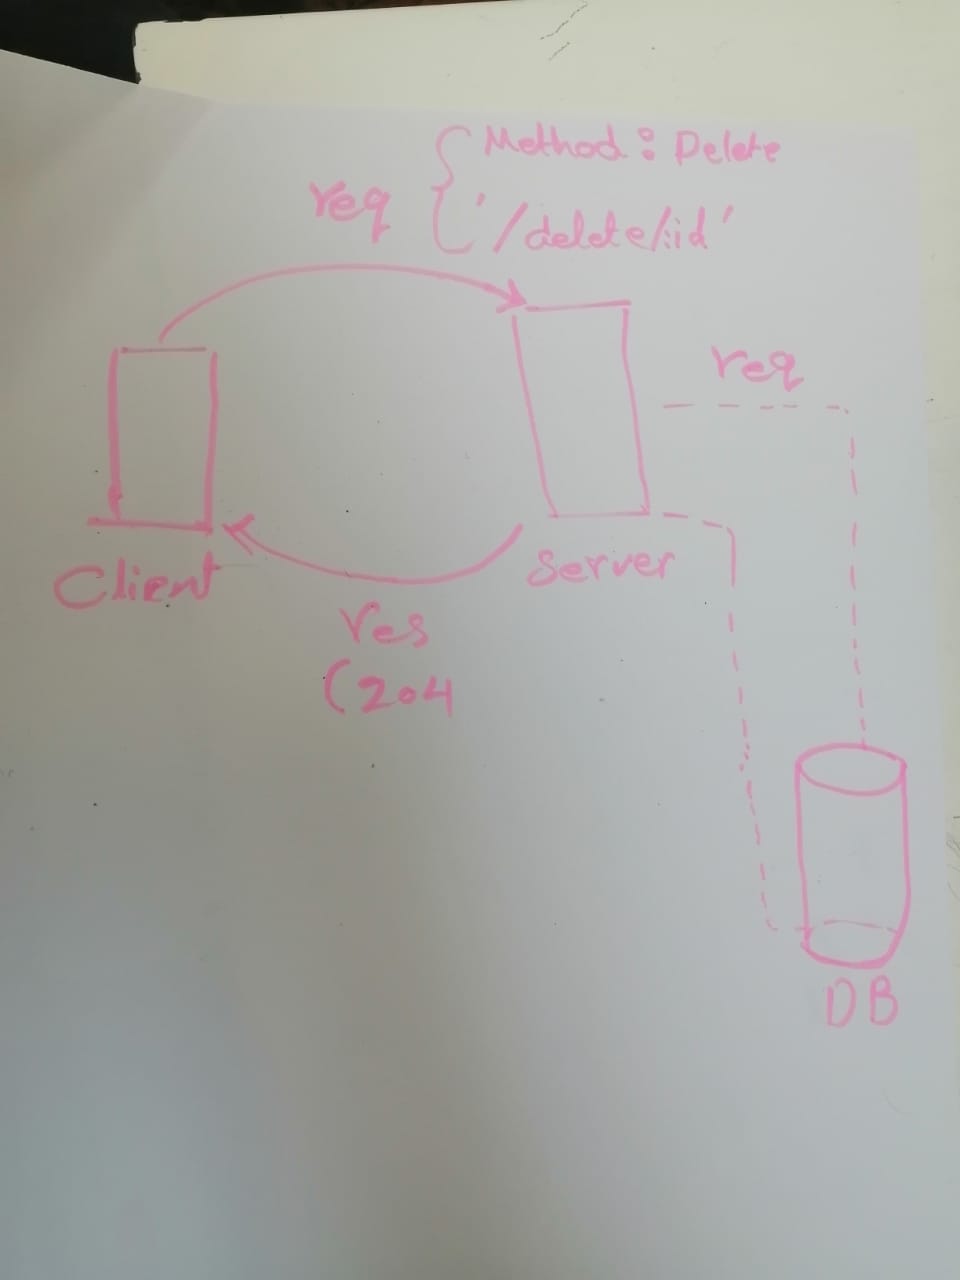 req
Method: Delete
'/delete/:id'
req
Client
Server
res
(204
DB